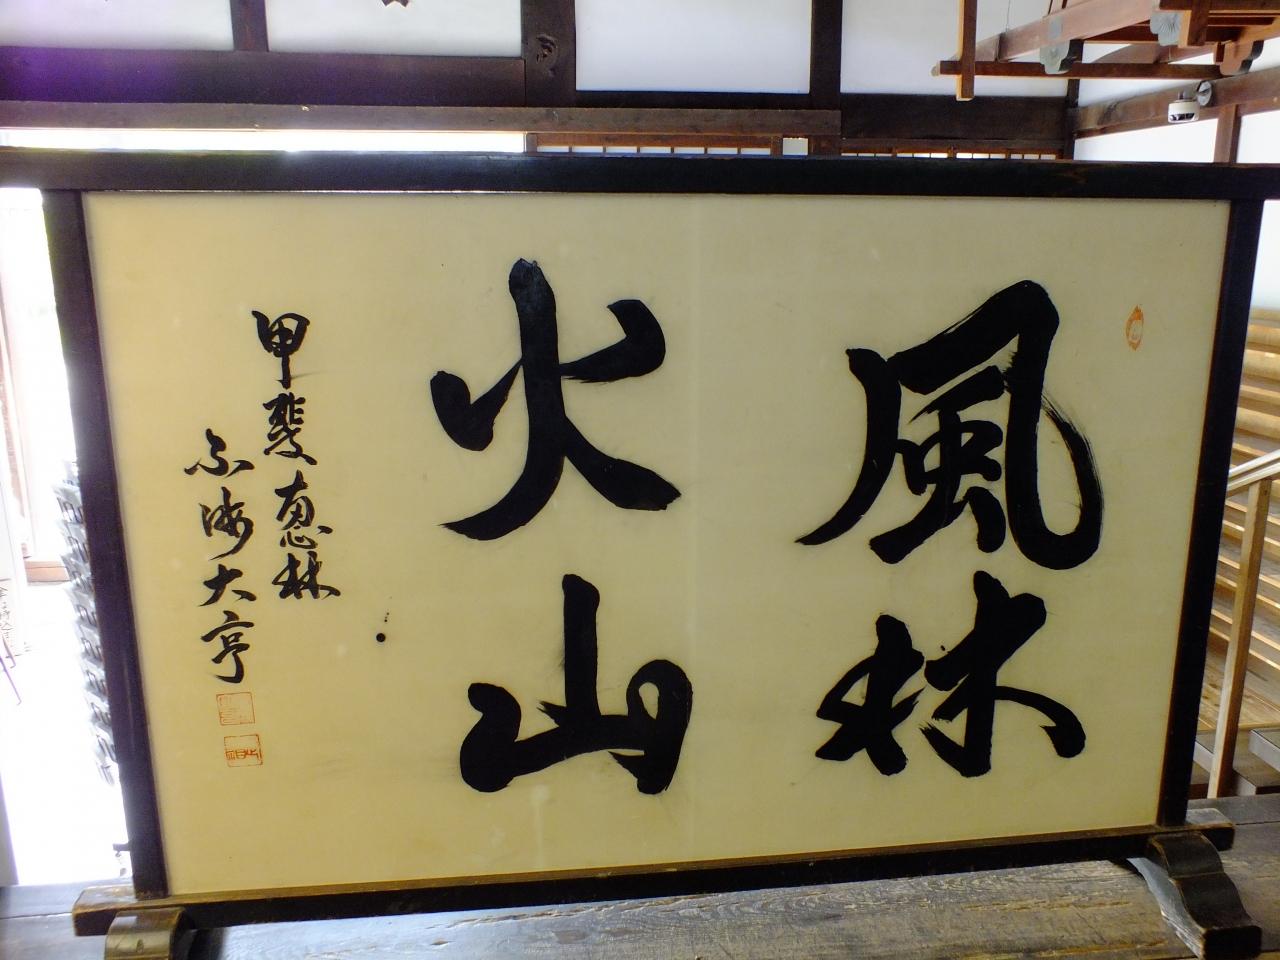 風林
火山
甲斐恵林
不海大亨